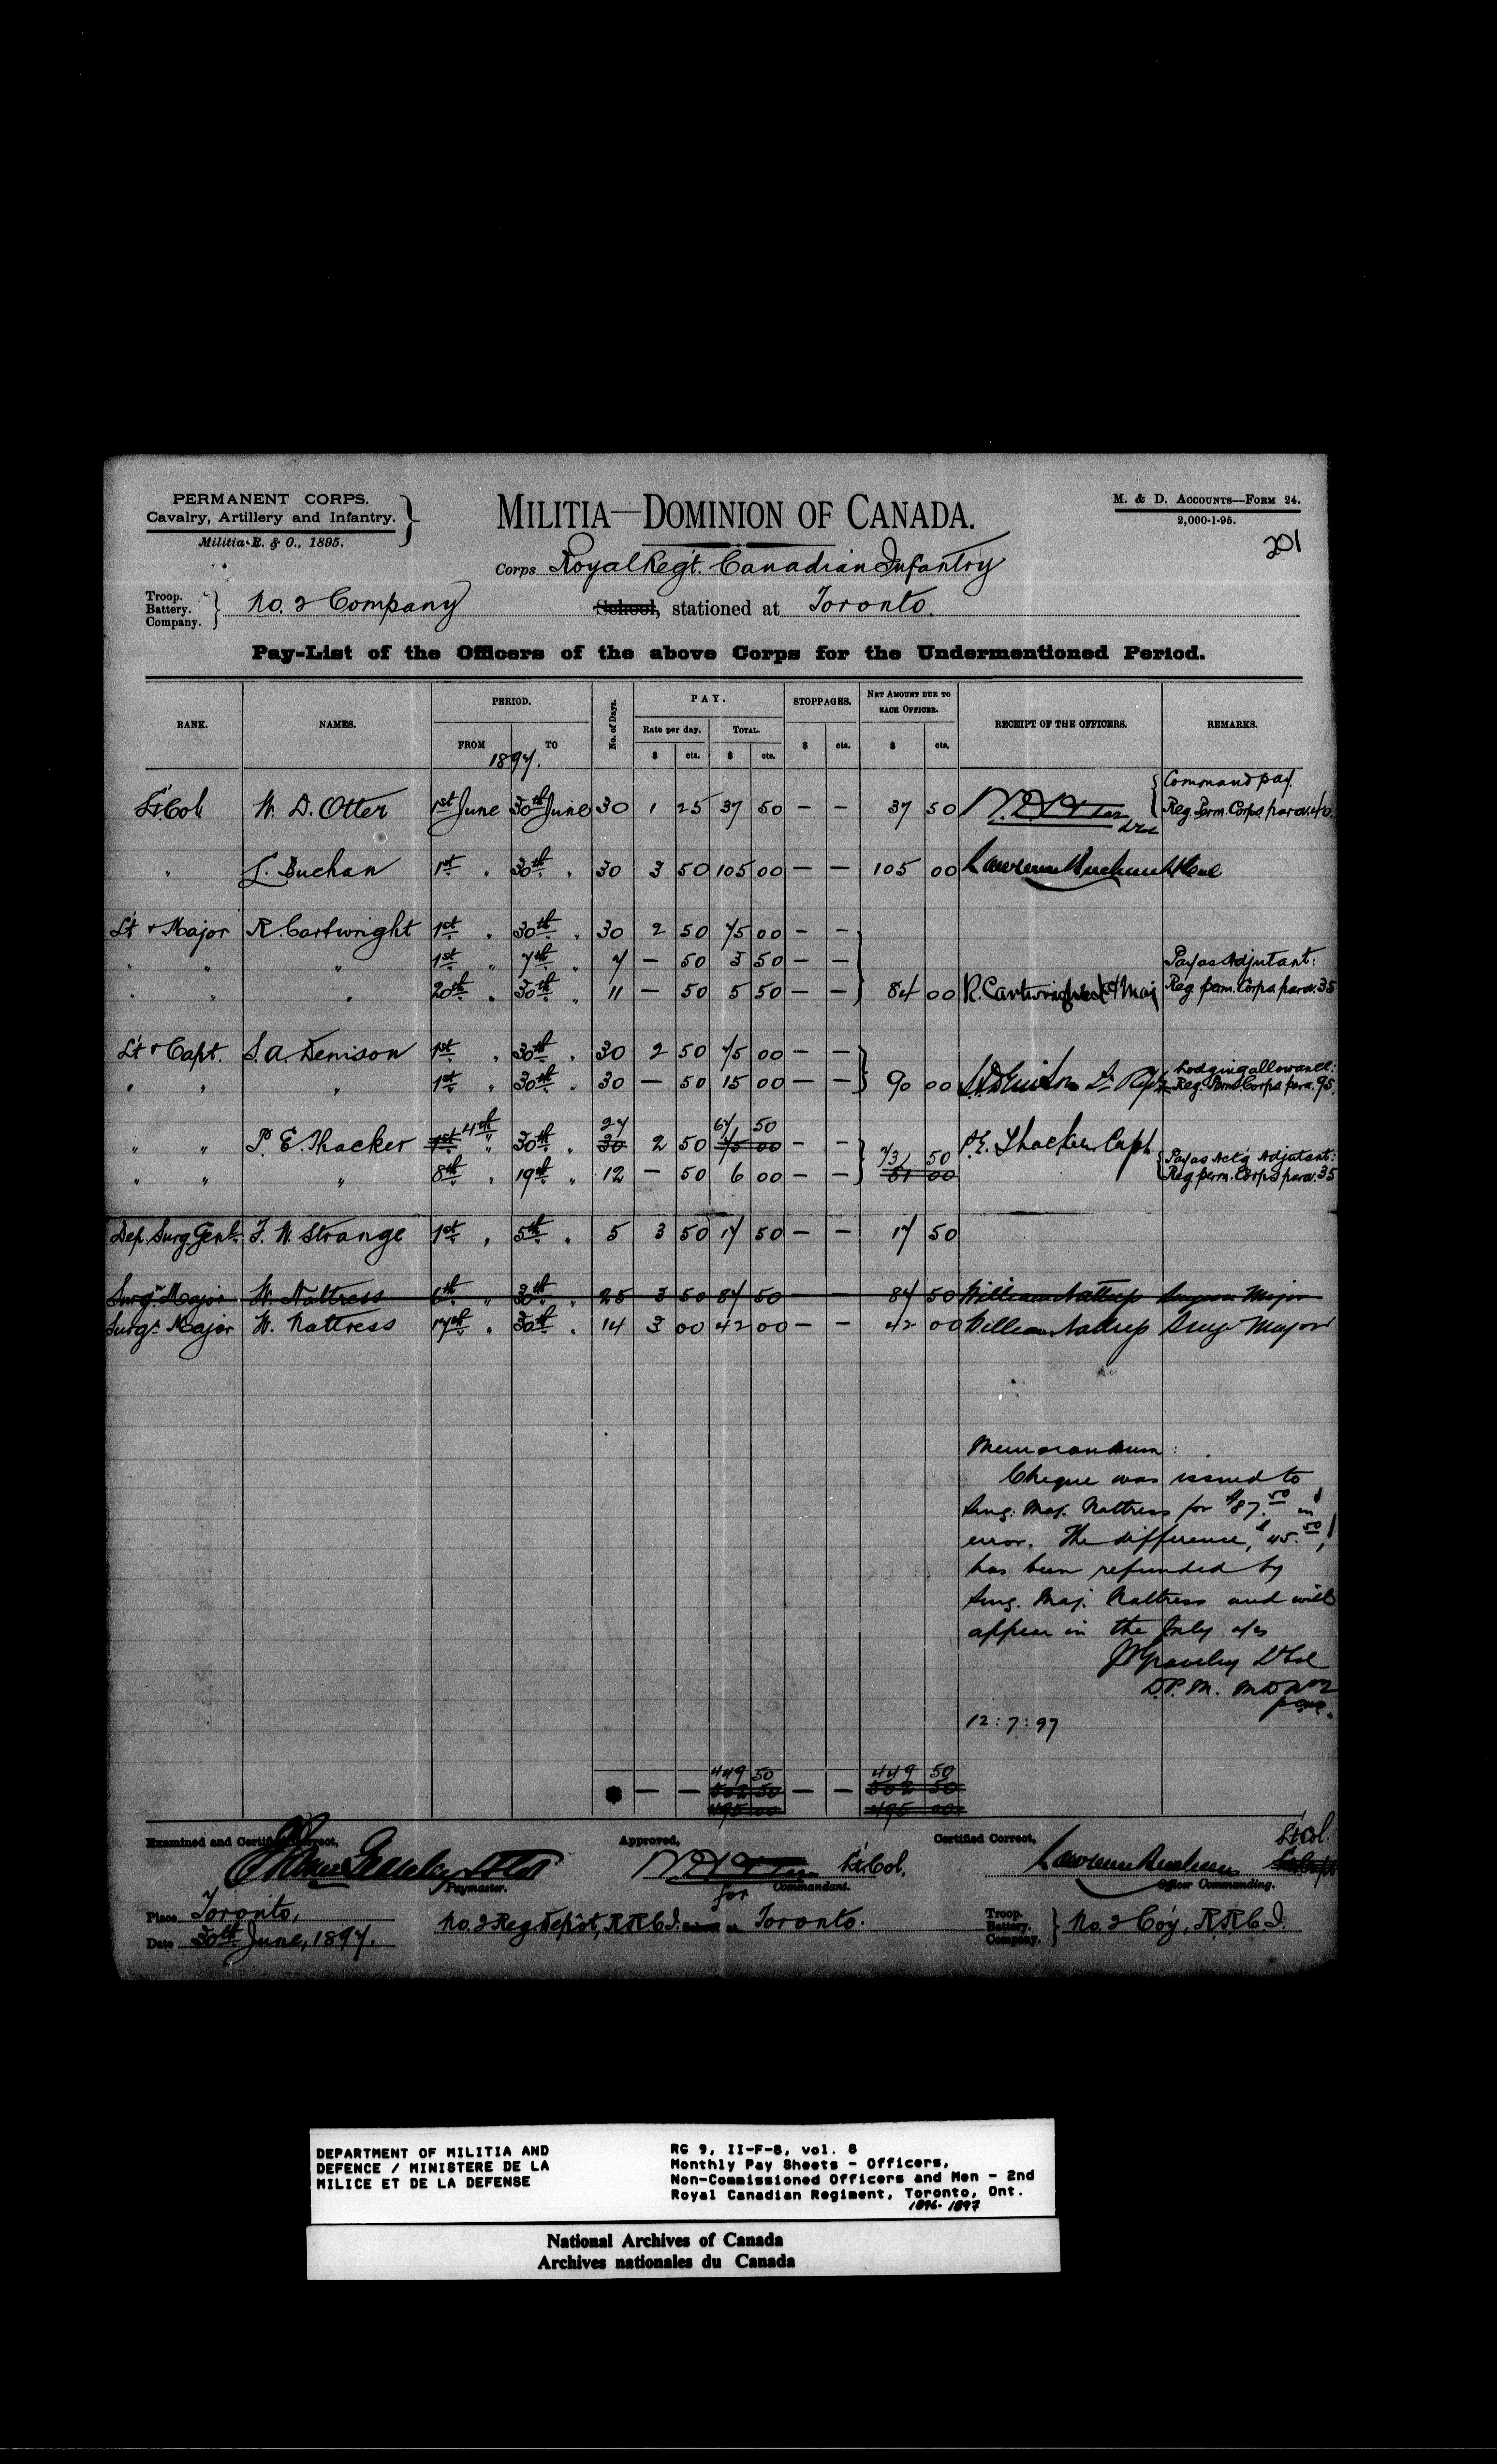 PERMANENT CORPS.
Cavalry, Artillery and Infantry.
Militia R. & O., 1895.
MILITIA—DOMINION OF CANADA.
M. & D. ACCOUNTS—FORM 24.
2,000-1-95.
201
Corps Royal Regt. Canadian Infantry
Troop. Battery. Company. } No. 2 Company School, stationed at Toronto.
Pay-List of the Officers of the above Corps for the Undermentioned Period.
RANK. NAMES. PERIOD. FROM TO No. of Days. PAY. Rate per day. $ cts. TOTAL. $ cts. STOPPAGES. $ cts. NET AMOUNT DUE TO EACH OFFICER. $ cts. RECEIPT OF THE OFFICERS. REMARKS.
1897.
Command pay.
Lt. Col. W. D. Otter 1st June 30th June 30 1 25 37 50 — — 37 50 W.D. Otter Lt Col Reg. Perm. Corps para. 40.
" L. Buchan 1st " 30th " 30 3 50 105 00 — — 105 00 Lawrence Buchan Lt Col
Lt & Major R. Cartwright 1st " 30th " 30 2 50 75 00 — —
" " " 1st " 7th " 7 — 50 3 50 — — Pay as Adjutant:
" " " 20th " 30th " 11 — 50 5 50 — — } 84 00 R. Cartwright Lt & Maj Reg. perm. Corps para. 35
Lt & Capt. S. A. Denison 1st " 30th " 30 2 50 75 00 — —
" " " 1st " 30th " 30 — 50 15 00 — — } 90 00 Lodging allowance: Reg. Perm. Corps para. 95.
27 67 50
" " P. E. Thacker 1st 4th " 30th " 30 2 50 75 00 — — P.E. Thacker Capt
73 50
" " " 8th " 19th " 12 — 50 6 00 — — } 81 00 Pay as Act'g Adjutant: Reg perm. Corps para. 35
Dep. Surg. Genl. F. W. Strange 1st " 5th " 5 3 50 17 50 — — 17 50
Surgn. Major W. Nattress 6th " 30th " 25 3 50 87 50 — — 87 50 William Nattress Surgeon Major
Surgn. Major W. Nattress 17th " 30th " 14 3 00 42 00 — — 42 00 William Nattress Surg. Major
Memorandum:
Cheque was issued to
Surg. Maj. Nattress for $87.50 in
error. The difference, $45.50,
has been refunded by
Surg. Maj. Nattress and will
appear in the July a/cs
Lt Col
D.P.M. M D No 2
12:7:97
449 50 449 50
— — 502 50 — — 502 50
495 00 495 00
Examined and Certified Correct, Approved, Certified Correct,
Lt Col Paymaster. W.D. Otter Lt. Col. Commandant. Lawrence Buchan Lt Col. Officer Commanding.
for
Place Toronto,
No. 2 Reg. Depôt, R.R.C.I. School at Toronto.
Troop. Battery. Company. } No. 2 Coy, R.R.C.I.
Date 30th June, 1897.
DEPARTMENT OF MILITIA AND
DEFENCE / MINISTERE DE LA
MILICE ET DE LA DEFENSE
RG 9, II-F-8, vol. 8
Monthly Pay Sheets - Officers,
Non-Commissioned Officers and Men - 2nd
Royal Canadian Regiment, Toronto, Ont.
1896-1897
National Archives of Canada
Archives nationales du Canada